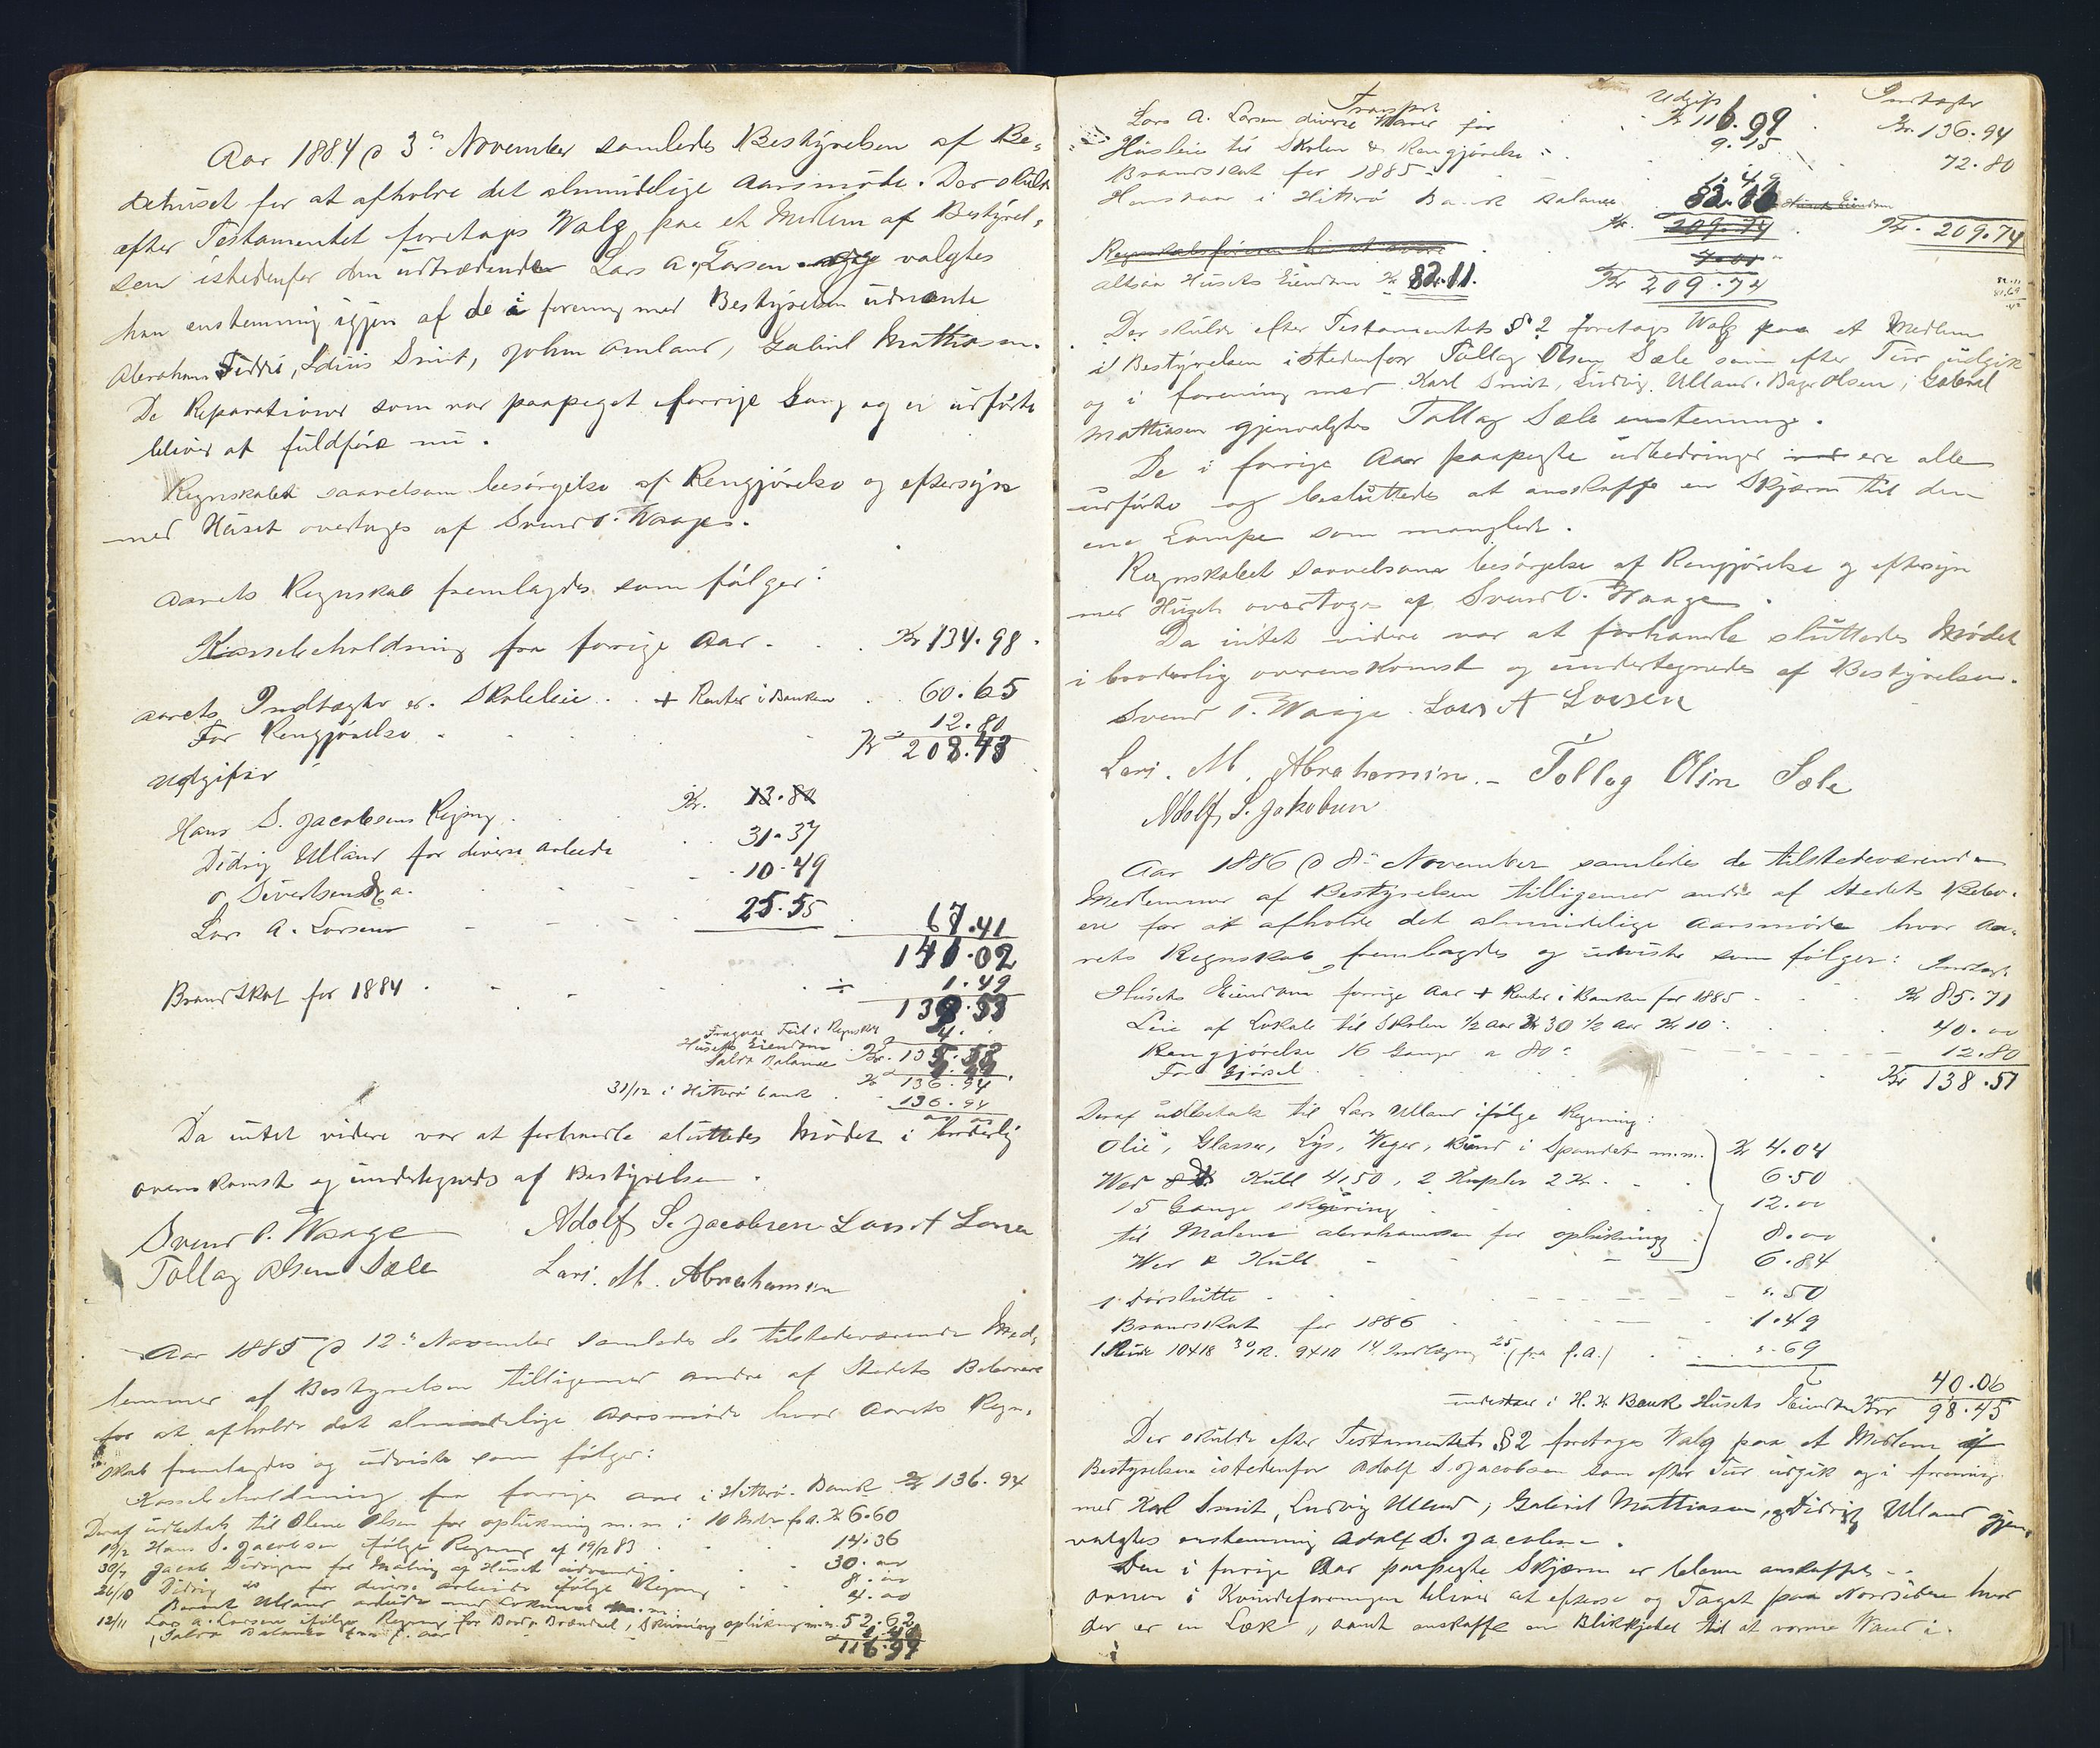 Aar 1884 d 3de November samledes Bestyrelsen af Be-
dehuset for at afholde det almindelige Aarsmøde. Der skulde
efter Testamentet foretages Valg paa et Medlem af Bestyrel-
sen istedenfor den udtrædende Lars A. Larsen valgtes
han enstemmig igjen af de i forening med Bestyrelsen udnævnte
Abraham, Smit, John Amland, Gabriel Mathiasen.
De Reparationer som var paapeget forrige Gang og ei udførte
bliver at fuldføre nu.
Regnskabet saavelsom besørgelse af Rengjørelse og eftersyn
med Huset overtages af Svend O. Waage.
Aarets Regnskab fremlagdes som følger:
Kassebeholdning fra forrige Aar . . . Kr 134.98.
Aarets Indtægter er. Skoleleie . . + Renter i Banken . 60.65
For Rengjørelse . . . 12.80
Kr 208.43
Udgifter
Hans S. Jacobsens Regning . Kr. 13.80
Didrig Ulland for diverse arbeide . . 31.37
O. Sivertsen & a. . . . 10.49
Lars A. Larsen . . . 25.55 . 67.41
141.02
Brandskat for 1884 . . . ÷ 1.49
139.53
Feil i Regnskb 4.
Husets Eiendom Kr. 135.53
Saldo Balance
Kr 136.94
31/12 i Hitterø bank . 136.94
Da intet videre var at forhandle sluttedes Mødet i broderlig
overenskomst og undertegnedes af Bestyrelsen.
Svend O. Waage Adolf S. Jacobsen Lars A Larsen
Tollag Olsen Sæle Lars. M. Abrahamsen
Aar 1885 d 12te November samledes de tilstedeværende Med-
lemmer af Bestyrelsen tilligemed andre af Stedets Beboere
for at afholde det almindelige Aarsmøde hvor Aarets Regn-
skab fremlagdes og udviste som følger:
Kassebeholdning fra forrige aar i Hitterø Bank Kr 136.94
Deraf udbetalt til Olene Olsen for oplukning m.m i 10 Mdr f.A. Kr 6.60
19/2 Hans S. Jacobsen ifølge Regning af 19/12 83 . . 14.36
30/7 Jacob Didrigsen for Maling af Huset udvendig . . 30.00
26/10 Didrig do for diverse arbeide ifølge Regning . . 8.00
Ulland arbeide med m.m. . . 4.00
12/11 Lars A. Larsen ifølge Regning for Brændsel, Skuring oplukning m.m. 52.62
Saldo Balance fra f. aar
116.99
Transport Udgift Indtægter
Lars A. Larsen diverse Varer for . . Kr 116.99 . Kr. 136.94
Husleie til Skolen & Rengjørelse . . 9.15 72.80
Brandskat for 1885 . 1.49
Henstaar i Hitterø Bank Balance . 82.11 Husets Eiendom
Kr. 209.74 . Kr. 209.74
Regnskabsføreren
altsaa Husets Eiendom Kr 82.11. Kr 209.74
Der skulde efter Testamentets § 2 foretages Valg paa et Medlem
i Bestyrelsen istedenfor Tollag Olsen Sæle som efter Tur udgik
og i forening med Karl Smit, Ludvig Ulland, Olsen, Gabriel
Mathiasen gjenvalgtes Tollag Sæle enstemmig.
De i forrige Aar paapegte udbedringer ere alle
udførte og besluttedes at anskaffe en Skjærm til den
ene Lampe som manglede.
Regnskabet saavelsom besørgelse af Rengjørelse og eftersyn
med Huset overtoges af Svend O. Waage.
Da intet videre var at forhandle sluttedes Mødet
i broderlig overenskomst og undertegnedes af Bestyrelsen.
Svend O. Waage. Lars A Larsen
Lars. M. Abrahamsen. – Tollag Olsen Sæle
Adolf S. Jakobsen
Aar 1886 d 8de November samledes de tilstedeværende
Medlemmer af Bestyrelsen tilligemed andre af Stedets Bebo-
ere for at afholde det almindelige Aarsmøde hvor Aa-
rets Regnskab fremlagdes og udviste som følger: Indtægt
Husets Eiendom forrige Aar + Renter i Banken for 1885 . . Kr 85.71
Leie af Lokale til Skolen 1/2 Aar Kr 30 1/2 Aar Kr 10 . . 40.00
Rengjørelse 16 Gange a 80 . . 12.80
For Gjøssel . . Kr 138.51
Deraf udbetalt til Lars Ulland ifølge Regning:
Olie, Glasser, Lys, Væger, Bund i Spandet m.m. Kr 4.04
Wed & Kull 4,50, 2 Kupler 2 Kr. . . 6.50
15 Gange skuring . . 12.00
til Malene Abrahamsen for oplukning . 8.00
Wed & Kull . . 6.84
1 Dørslutte . . ".50
Brandskat for 1886 . . 1.49
1 Rude 10x18 30 R. 9x10 14. Indlægning 25 (fra f.A.) . . ".69
40.06
indestaar i H. Bank Husets Eiendom Kr 98.45
Der skulde efter Testamentets § 2 foretages Valg paa et Medlem af
Bestyrelsen istedenfor Adolf S. Jacobsen som efter Tur udgik og i forening
med Karl Smit, Ludvig Ulland, Gabriel Mathiasen, og Didrig Ulland gjen-
valgtes enstemmig Adolf S. Jacobsen.
Den i forrige Aar paapegte Skjærm er bleven anskaffet.
Ovnen i Kvindeforeningen bliver at efterse og Taget paa Nordsiden hvor
der er en Læk, samt anskaffe en Blikkjedel til at varme Vand i.